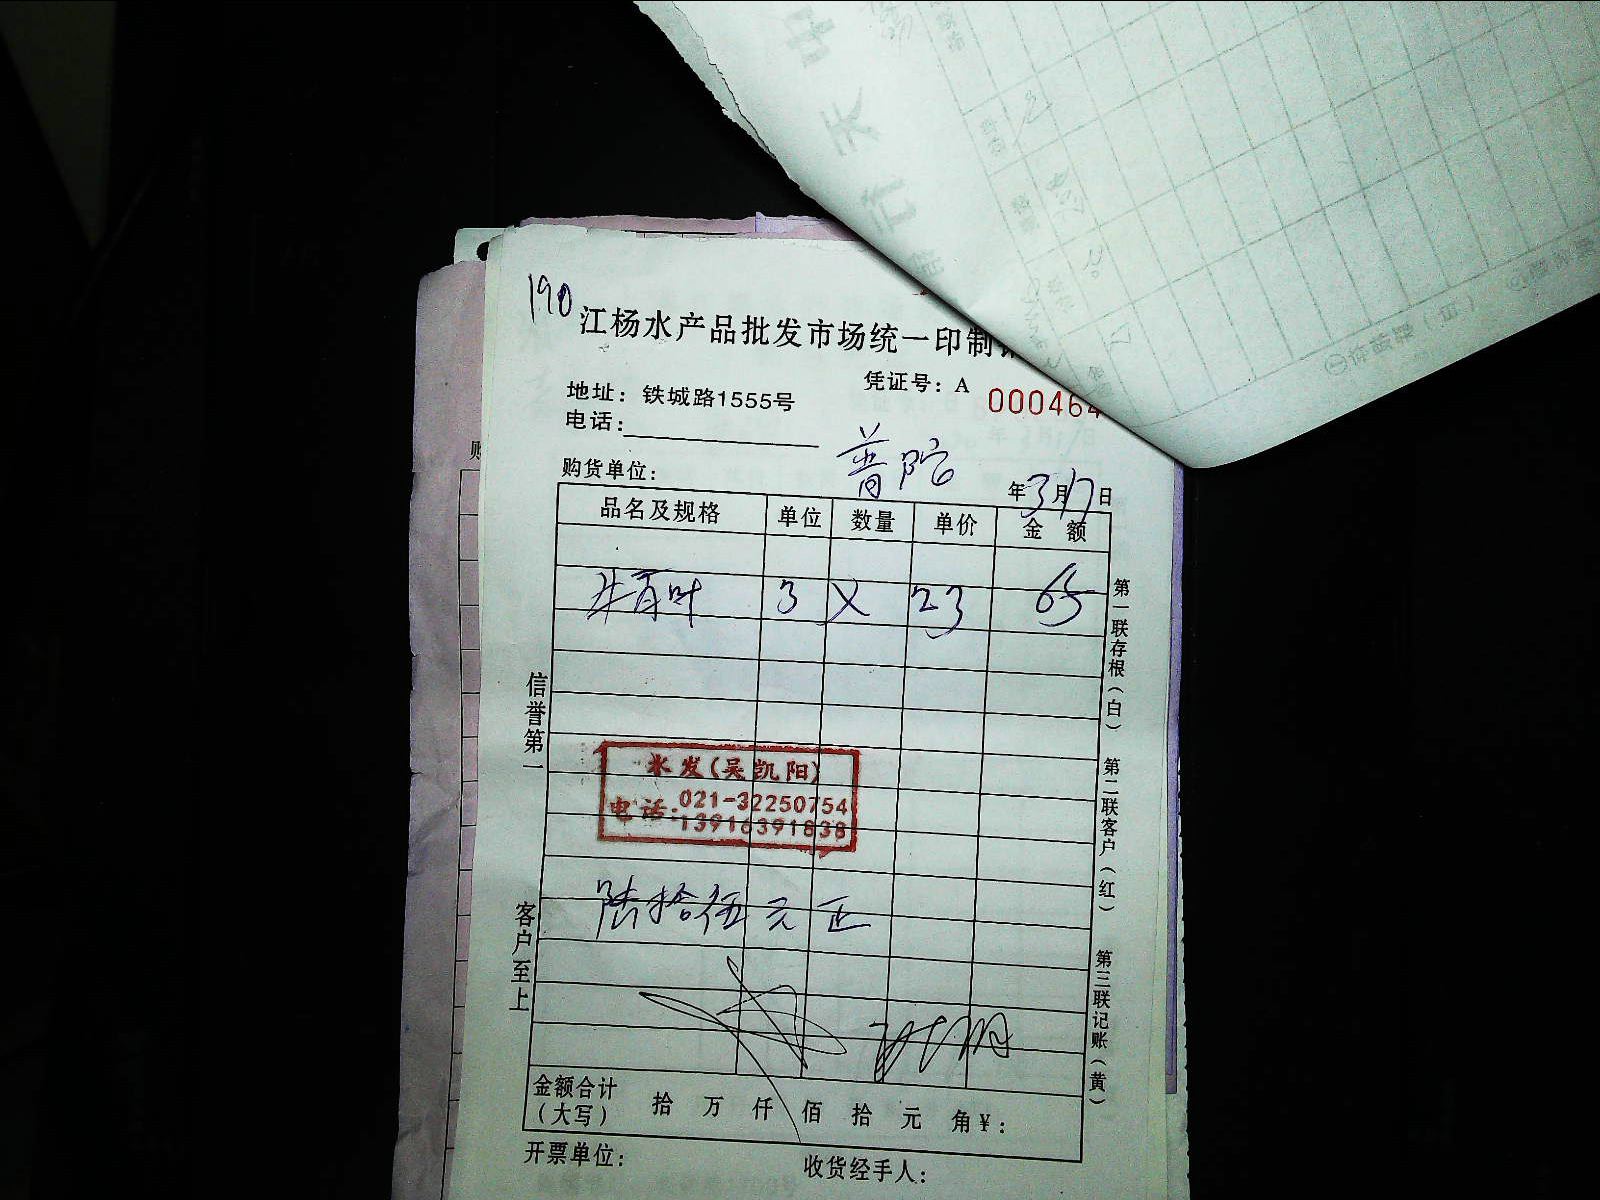 190
江杨水产品批发市场统一印制
地址：铁城路1555号
凭证号：A 000464
电话：
普陀
购货单位：
年3月17日
品名及规格 单位 数量 单价 金额
牛百叶 3 X 23 65
第一联存根（白） 第二联客户（红） 第三联记账（黄）
信誉第一
客户至上
水发(吴凯阳)
电话：021-32250754
13916391838
陆拾伍元正
金额合计（大写） 拾 万 仟 佰 拾 元 角 ¥：
开票单位：
收货经手人：